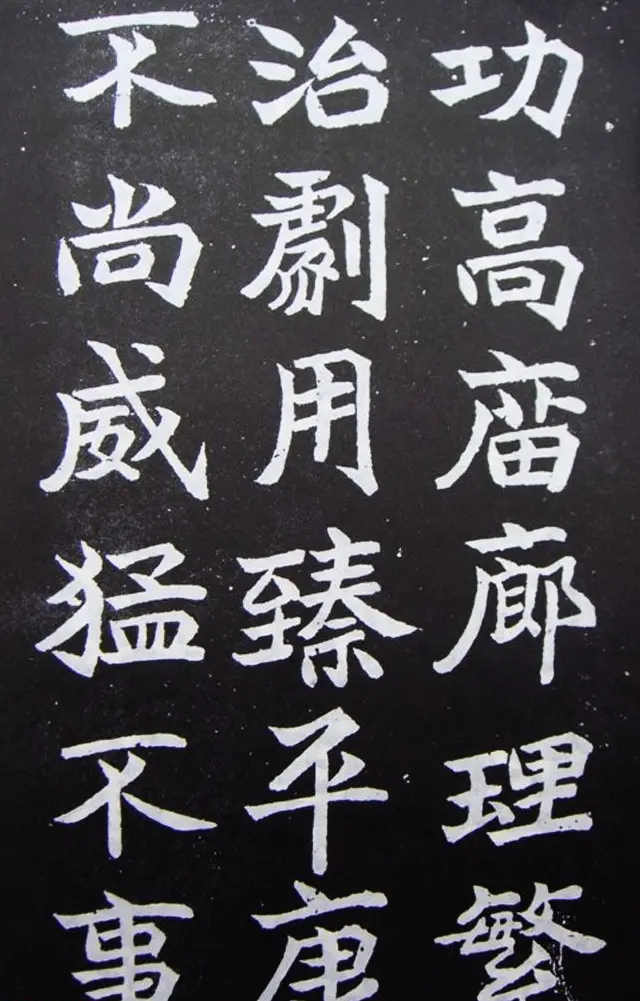 功高庿廊理繁
治劇用臻平康
不尚威猛不事